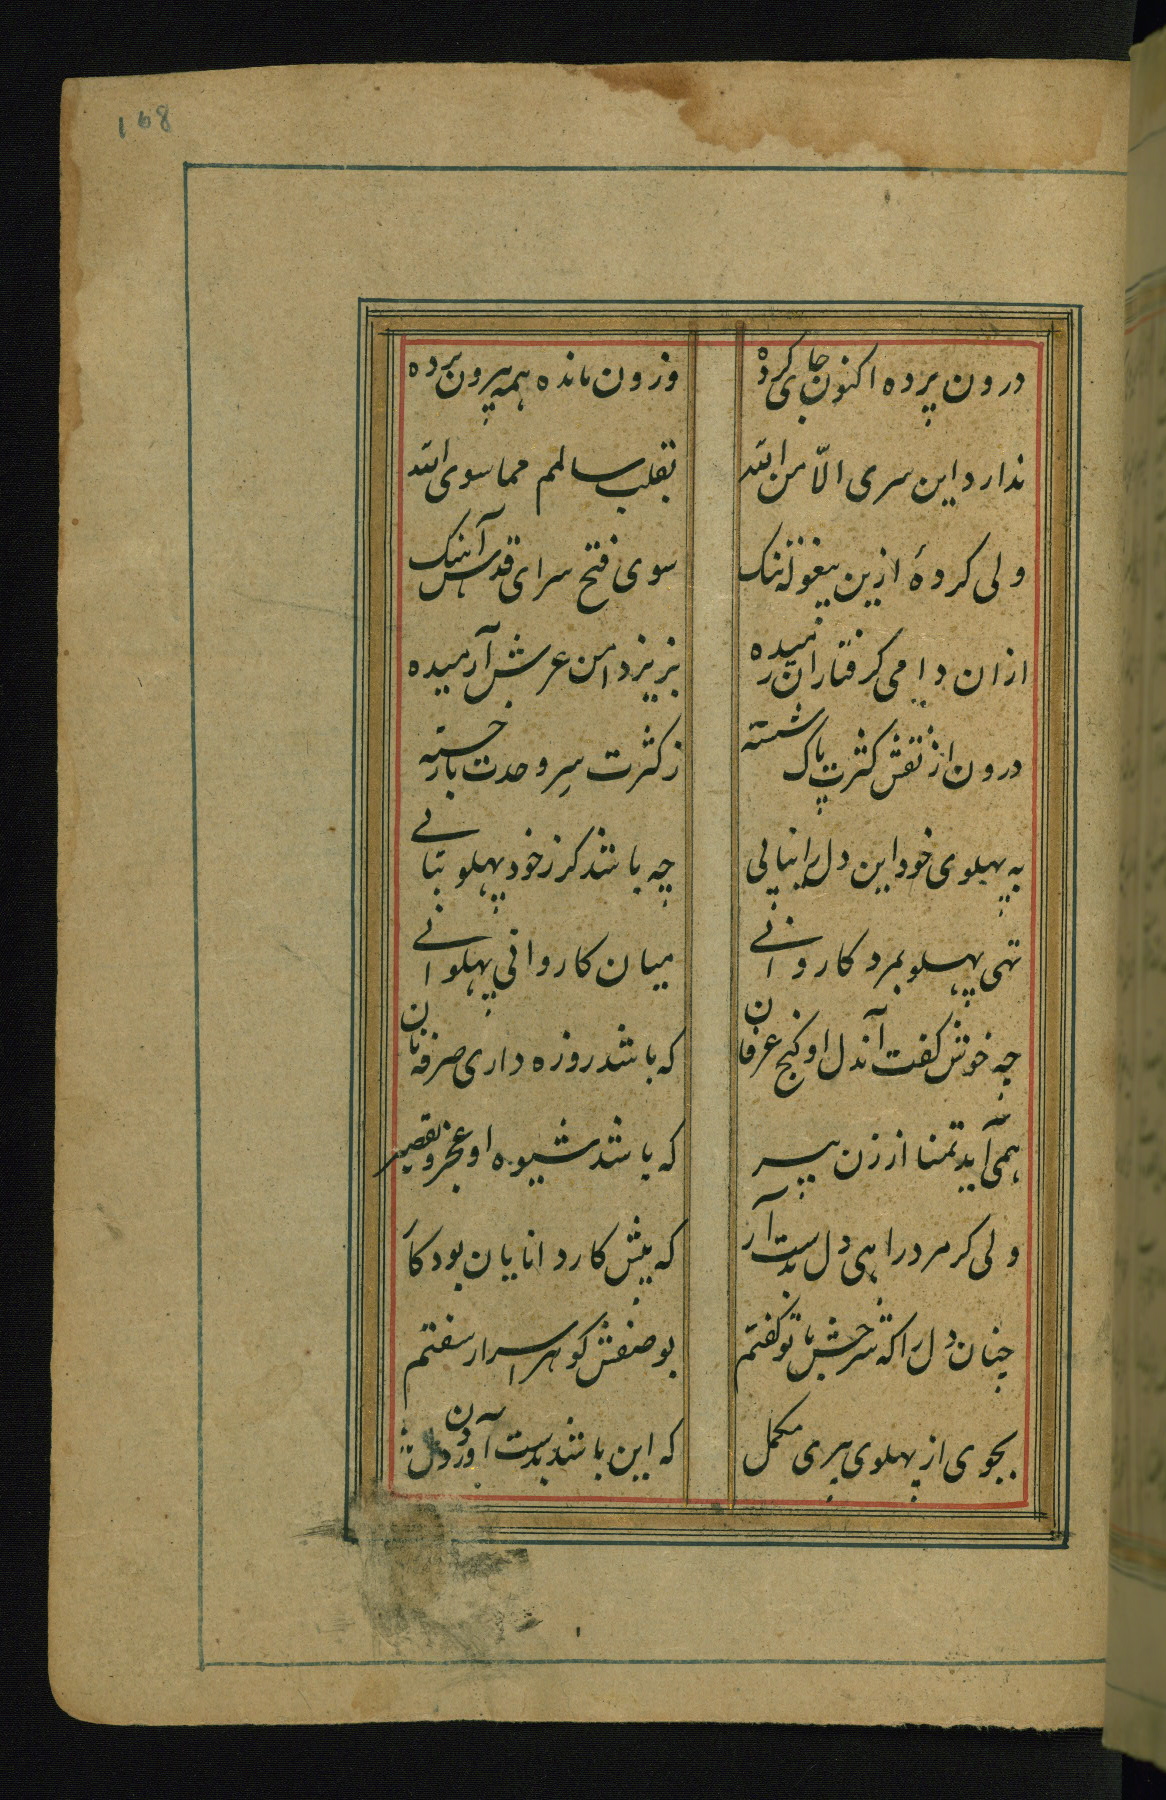 168
درون پرده اکنون جای کرده وزون مانده همه بیرون پرده
ندارد این سری الّا من اتی الله بقلب سالم مما سوی الله
ولی کردهٔ ازین بیغوله تنک سوی فتح سرای قدس آهنک
ازان دامی گرفتاران رمیده بزیر دامن عرش آرمیده
درون از نقش کثرت پاک شسته ز کثرت سر وحدت باز جسته
به پهلوی خود این دل را نیابی چه باشد کر ز خود پهلو بتابی
تهی پهلو بمرد کاروانی میان کاروانی پهلوانی
چه خوش کفت آندل او کنج عرفان که باشد روزه داری صرفه نان
همی آید تمنا از زن پیر که باشد شیوه او عجز و تقصیر
ولی کر مرد راهی دل بدست آر که پیش کاردانایان بود کار
چنان دل را که شرحش با تو کفتم بوصفش کوهر اسرار سفتم
بجوی از پهلوی پیری مکمل که این باشد بدست آوردن دل